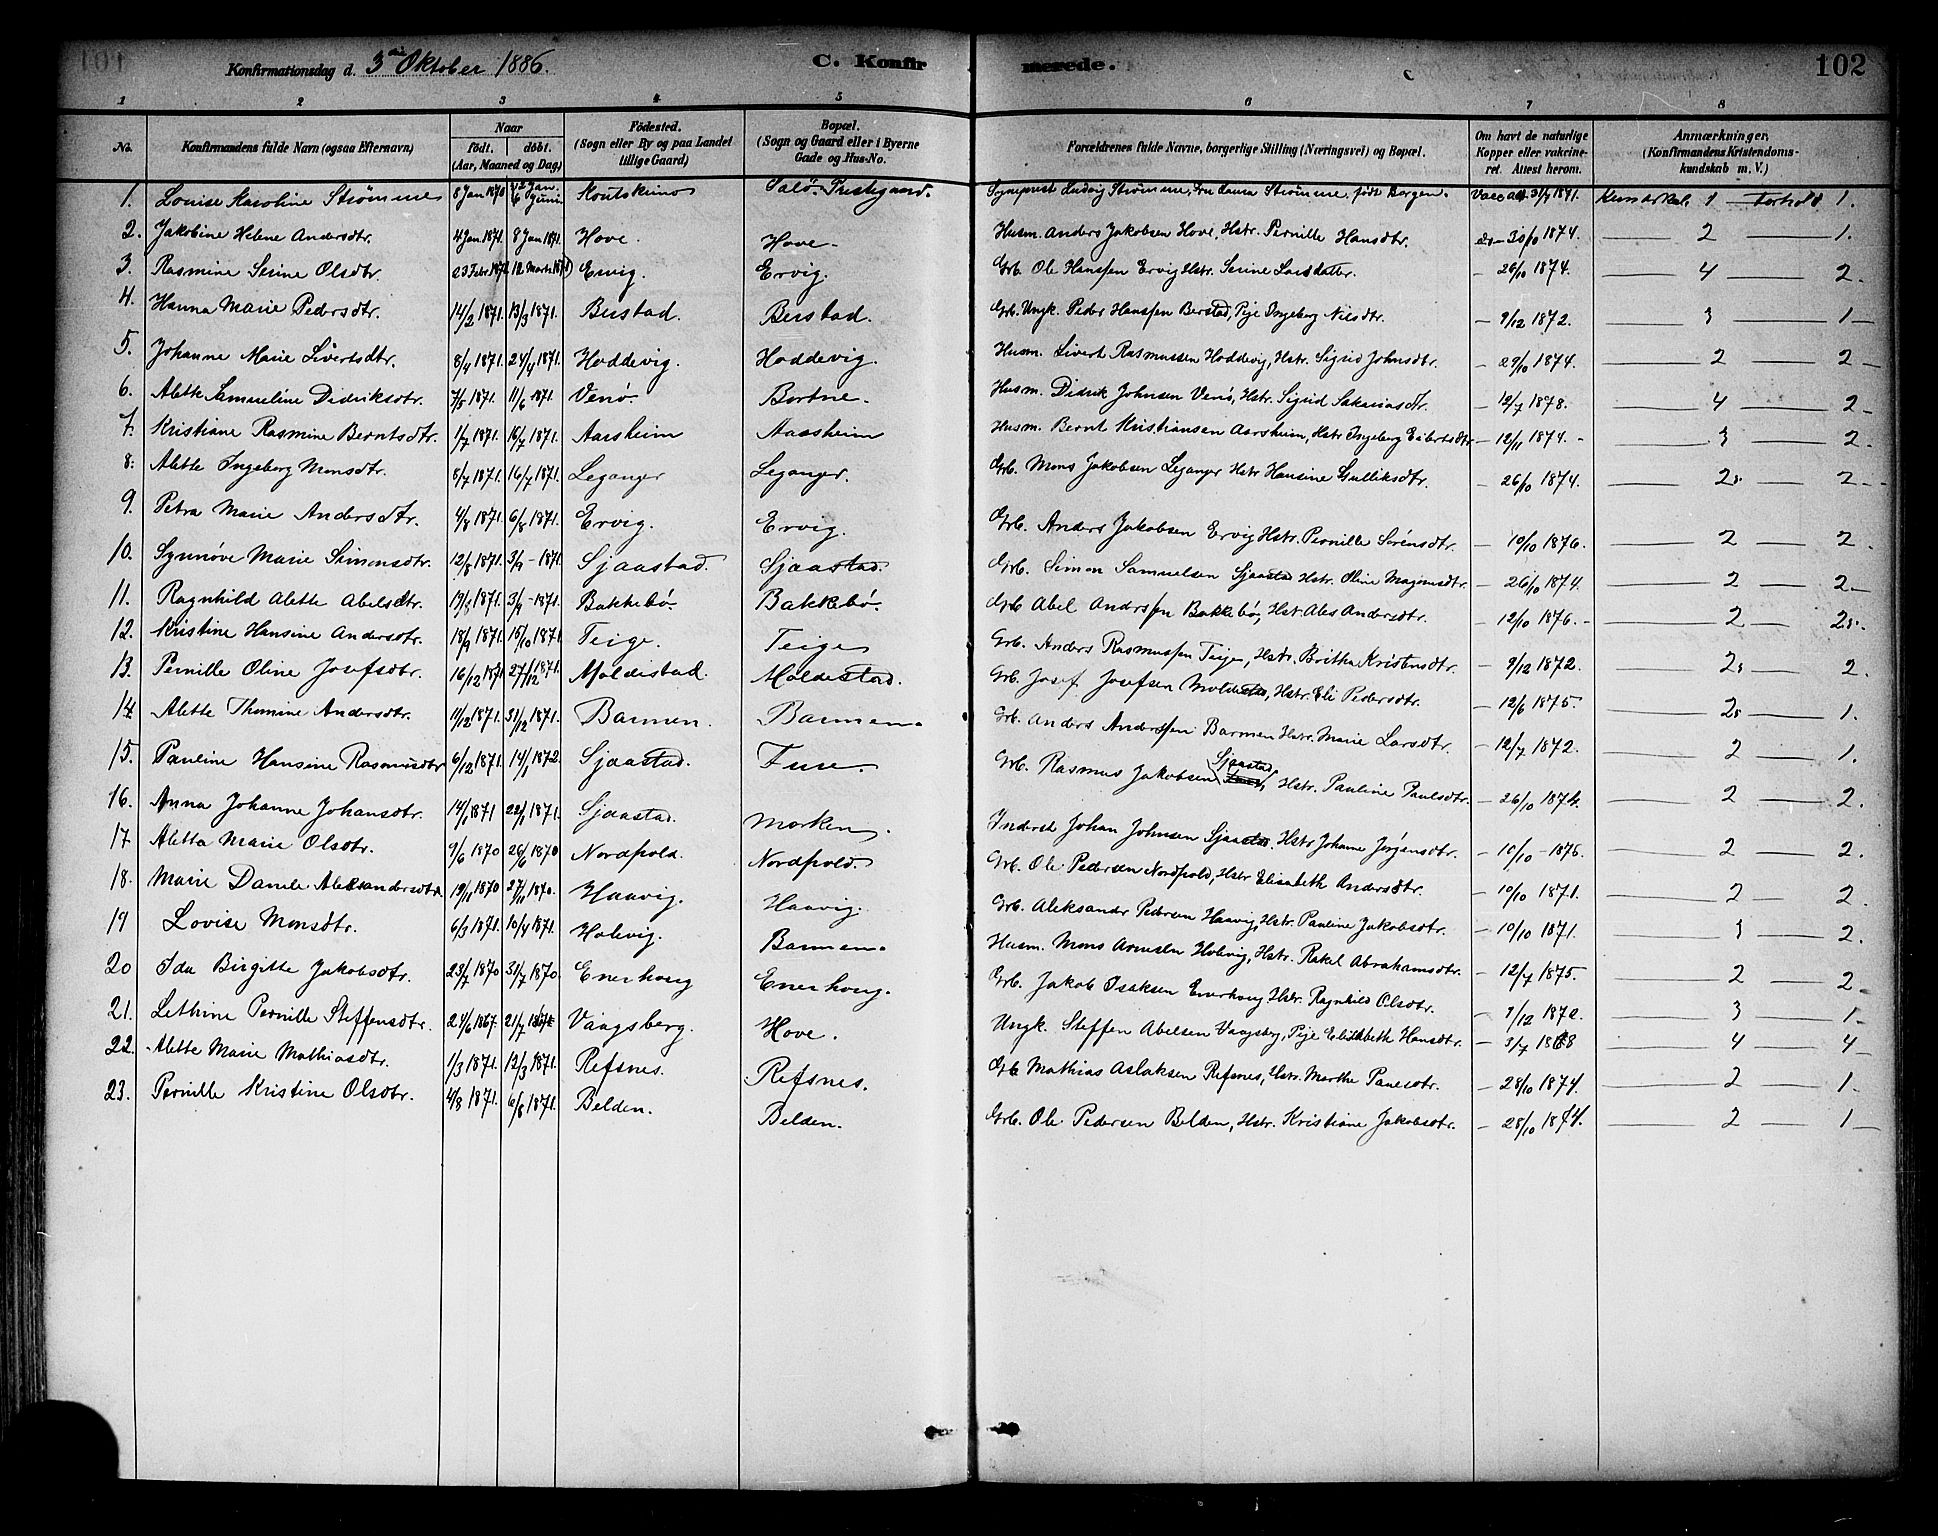 Konfirmationsdag d. 3die Oktober 1886. C. Konfirmerede. 102
1 2 3 4 5 6 7 8
No. Konfirmandens fulde Navn (ogsaa Efternavn) Naar födt. döbt. (Aar, Maaned og Dag) Födested. (Sogn eller By og paa Landet tillige Gaard) Bopæl. (Sogn og Gaard eller i Byerne Gade og Hus-No. Forældrenes fulde Navne, borgerlige Stilling (Næringsvei) og Bopæl. Om havt de naturlige Kopper eller vakcineret. Attest herom. Anmærkninger. (Konfirmandens Kristendomskundskab m. V.)
1. Louise Karoline Strømme 8 Jan 1870 Koutokeino Selø Prestegaard. Sogneprest Ludvig Strømme, Fru Laura Strømme født Borgen. Vacc. att 31/7 1871. Kundskab. 1 Forhold 1.
2. Jakobine Helene Andersdtr. 4 Jan. 1871. 8 Jan 1871. Hove. Hove. Husm. Anders Jakobsen Hove, Hstr. Pernille Hansdtr. do 30/10 1874. 2 1.
3. Rasmine Serine Olsdtr. 23 Febr 1871 12 Marts 1871 Ervig. Ervig. Grb. Ole Hansen Ervig Hstr. Serine Larsdatter. 26/10 1874. 4 2.
4. Hanna Marie Pedersdtr. 14/2 1871. 13/3 1871. Berstad. Berstad. Grb. Ungk. Peder Hansen Berstad, Pige Ingeborg Nilsdtr. 9/12 1872. 3 1
5. Johanne Marie Sivertsdtr. 8/4 1871. 24/4 1871. Hoddevig. Hoddevig. Husm. Sivert Rasmussen Hoddevig, Hstr. Sigrid Johnsdtr. 29/10 1874. 2 2
6. Alette Samueline Didriksdtr. 7/5 1871. 11/6 1871. Venø. Bortne. Husm. Didrik Johnsen Venø, Hstr. Sigrid Sakariasdtr. 12/7 1878. 4 2
7. Kristiane Rasmine Berntsdtr. 1/7 1871. 16/7 1871. Aarsheim Aarsheim Husm. Bernt Kristiansen Aarsheim, Hstr Ingeborg Eibertsdtr 12/11 1874. 3 2.
8. Alette Ingeborg Monsdtr. 8/7 1871. 16/7 1871. Leganger Leganger. Grb. Mons Jakobsen Leganger Hstr Hansine Gulliksdtr. 26/10 1874. 2 2
9. Petra Marie Andersdtr. 4/8 1871. 6/8 1871. Ervig. Ervig. Grb. Anders Jakobsen Ervig Hstr. Pernille Sørensdtr. 10/10 1876. 2 2.
10. Synnøve Marie Simonsdtr. 12/8 1871. 3/9 1871. Sjaastad. Sjaastad. Grb. Simon Samuelsen Sjaastad Hstr. Oline Magnusdtr. 26/10 1874. 2 2
11. Ragnhild Alette Abelsdtr. 19/8 1871. 3/9 1871. Bakkebø. Bakkebø. Grb Abel Andersen Bakkebø, Hstr. Ales Andersdtr. 12/10 1876. 2 2
12. Kristine Hansine Andersdtr. 18/9 1871. 15/10 1871. Teige. Teige Grb. Anders Rasmussen Teige, Hstr. Britha Kristensdtr. 9/12 1872. 2 2.
13. Pernille Oline Josefsdtr. 16/12 1871 27/12 1871. Moldestad. Moldestad. Grb. Josef Josefsen Moldestad, Hstr. Eli Pedersdtr. 12/6 1875. 2 1.
14. Alette Thomine Andersdtr. 11/12 1871. 31/12 1871. Barmen. Barmen. Grb. Anders Andersen Barmen Hstr. Marie Larsdtr. 12/7 1872. 2 1.
15. Pauline Hansine Rasmusdtr 6/12 1871. 14/1 1872. Sjaastad. Fure. Grb. Rasmus Jakobsen Sjaastad, Hstr. Pauline Paulsdtr. 26/10 1874. 2 2.
16. Anna Johanne Johansdtr. 14/1 1871 22/1 1871. Sjaastad. Morken. Inderst Johan Johnsen Sjaastad, Hstr Johanne Jørgensdtr. 10/10 1876. 2 2.
17 Aletta Marie Olsdtr. 9/6 1870 26/6 1870 Nordpold. Nordpold. Grb. Ole Pedersen Nordpold, Hstr Elisabeth Andersdtr. 10/10 1871. 2 2.
18. Marie Danele Aleksandersdtr 19/11 1870 27/11 1870. Haavig. Haavig. Grb. Aleksander Pedersen Haavig, Hstr. Pauline Jakobsdtr. 10/10 1871. 3 2.
19 Lovise Monsdtr. 6/3 1871. 10/4 1871. Holevig. Barmen. Husm. Mons Arnesen Holevig, Hstr. Rakel Abrahamsdtr. 12/7 1875. 2 2
20 Ida Birgitte Jakobsdtr. 23/7 1870 31/7 1870. Enerhoug Enerhoug. Grb. Jakob Isaksen Enerhoug Hstr. Ragnhild Olsdtr. 9/12 1872. 3 1
21. Lethine Pernille Steffensdtr. 24/6 1867. 21/7 1867. Vaagsberg. Hove. Ungk. Steffen Abelsen Vaagsberg, Pige Elisabeth Hansdtr. 3/7 1868 4 4
22. Alette Marie Mathiasdtr. 1/3 1871. 12/3 1871. Refsnes. Refsnes. Grb Mathias Aslaksen Refsnes, Hstr. Marthe 28/10 1874. 2 1.
23. Pernille Kristine Olsdtr. 4/8 1871. 6/8 1871. Belden. Belden. Grb. Ole Pedersen Belden, Hstr. Kristiane Jakobsdtr. 28/10 1874. 2 1